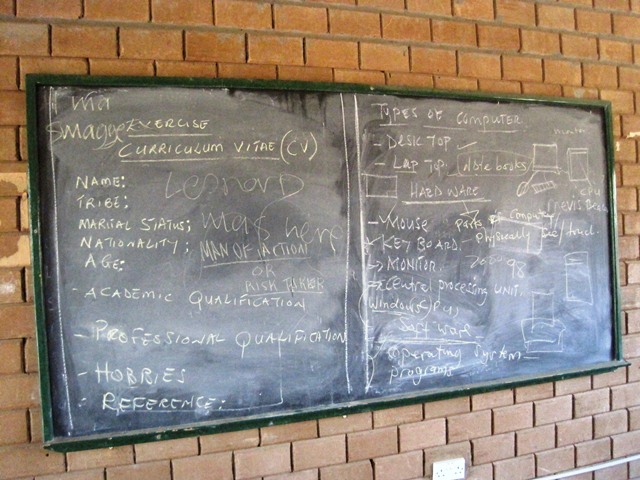 EXERCISE
CURRICULUM VITAE (CV)
NAME: Leonard
TRIBE:
MARITAL STATUS; was here
NATIONALITY; MAN OF ACTION
AGE: OR
RISK TAKER
- ACADEMIC QUALIFICATION
- PROFESSIONAL QUALIFICATION
- HOBBIES
- REFERENCE:
TYPES OF COMPUTER
- DESKTOP
- LAP TOP. Note books
monitor
HARDWARE
CPU
- MOUSE parts of computer
- KEY BOARD. physically see/touch.
- MONITOR. 98
- central processing unit.
(Windows XP)
Software
- Operating System
programs